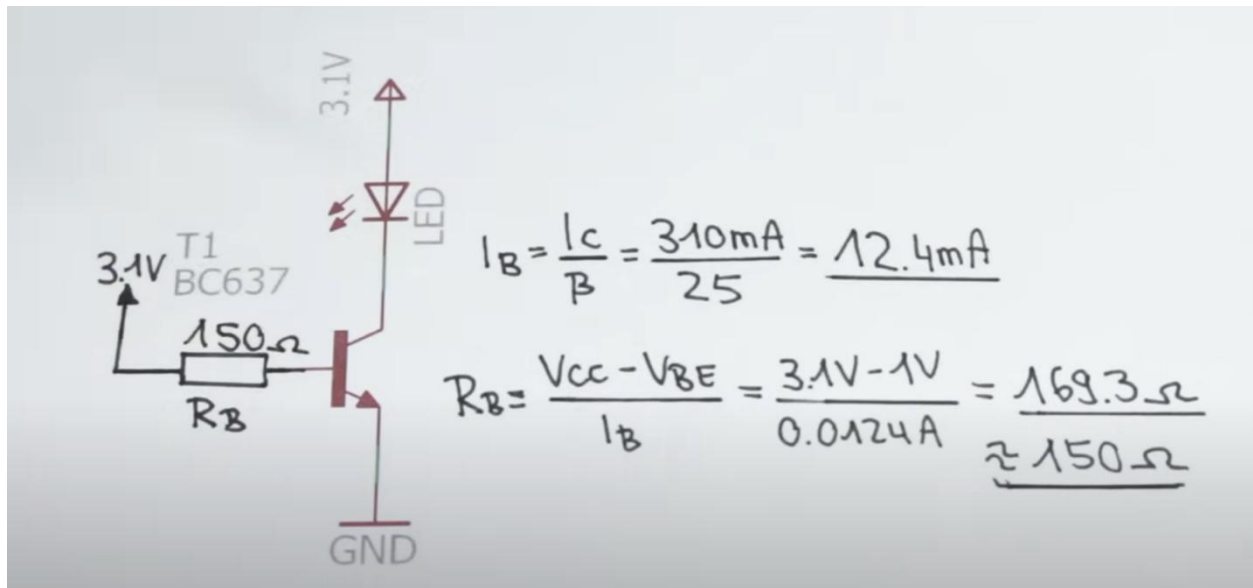 3.1V
LED
T1
BC637
3.1V
150Ω
R_B
GND
I_B = I_C / β = 310mA / 25 = 12.4mA
R_B = (V_CC - V_BE) / I_B = (3.1V - 1V) / 0.0124A = 169.3Ω
≈ 150Ω